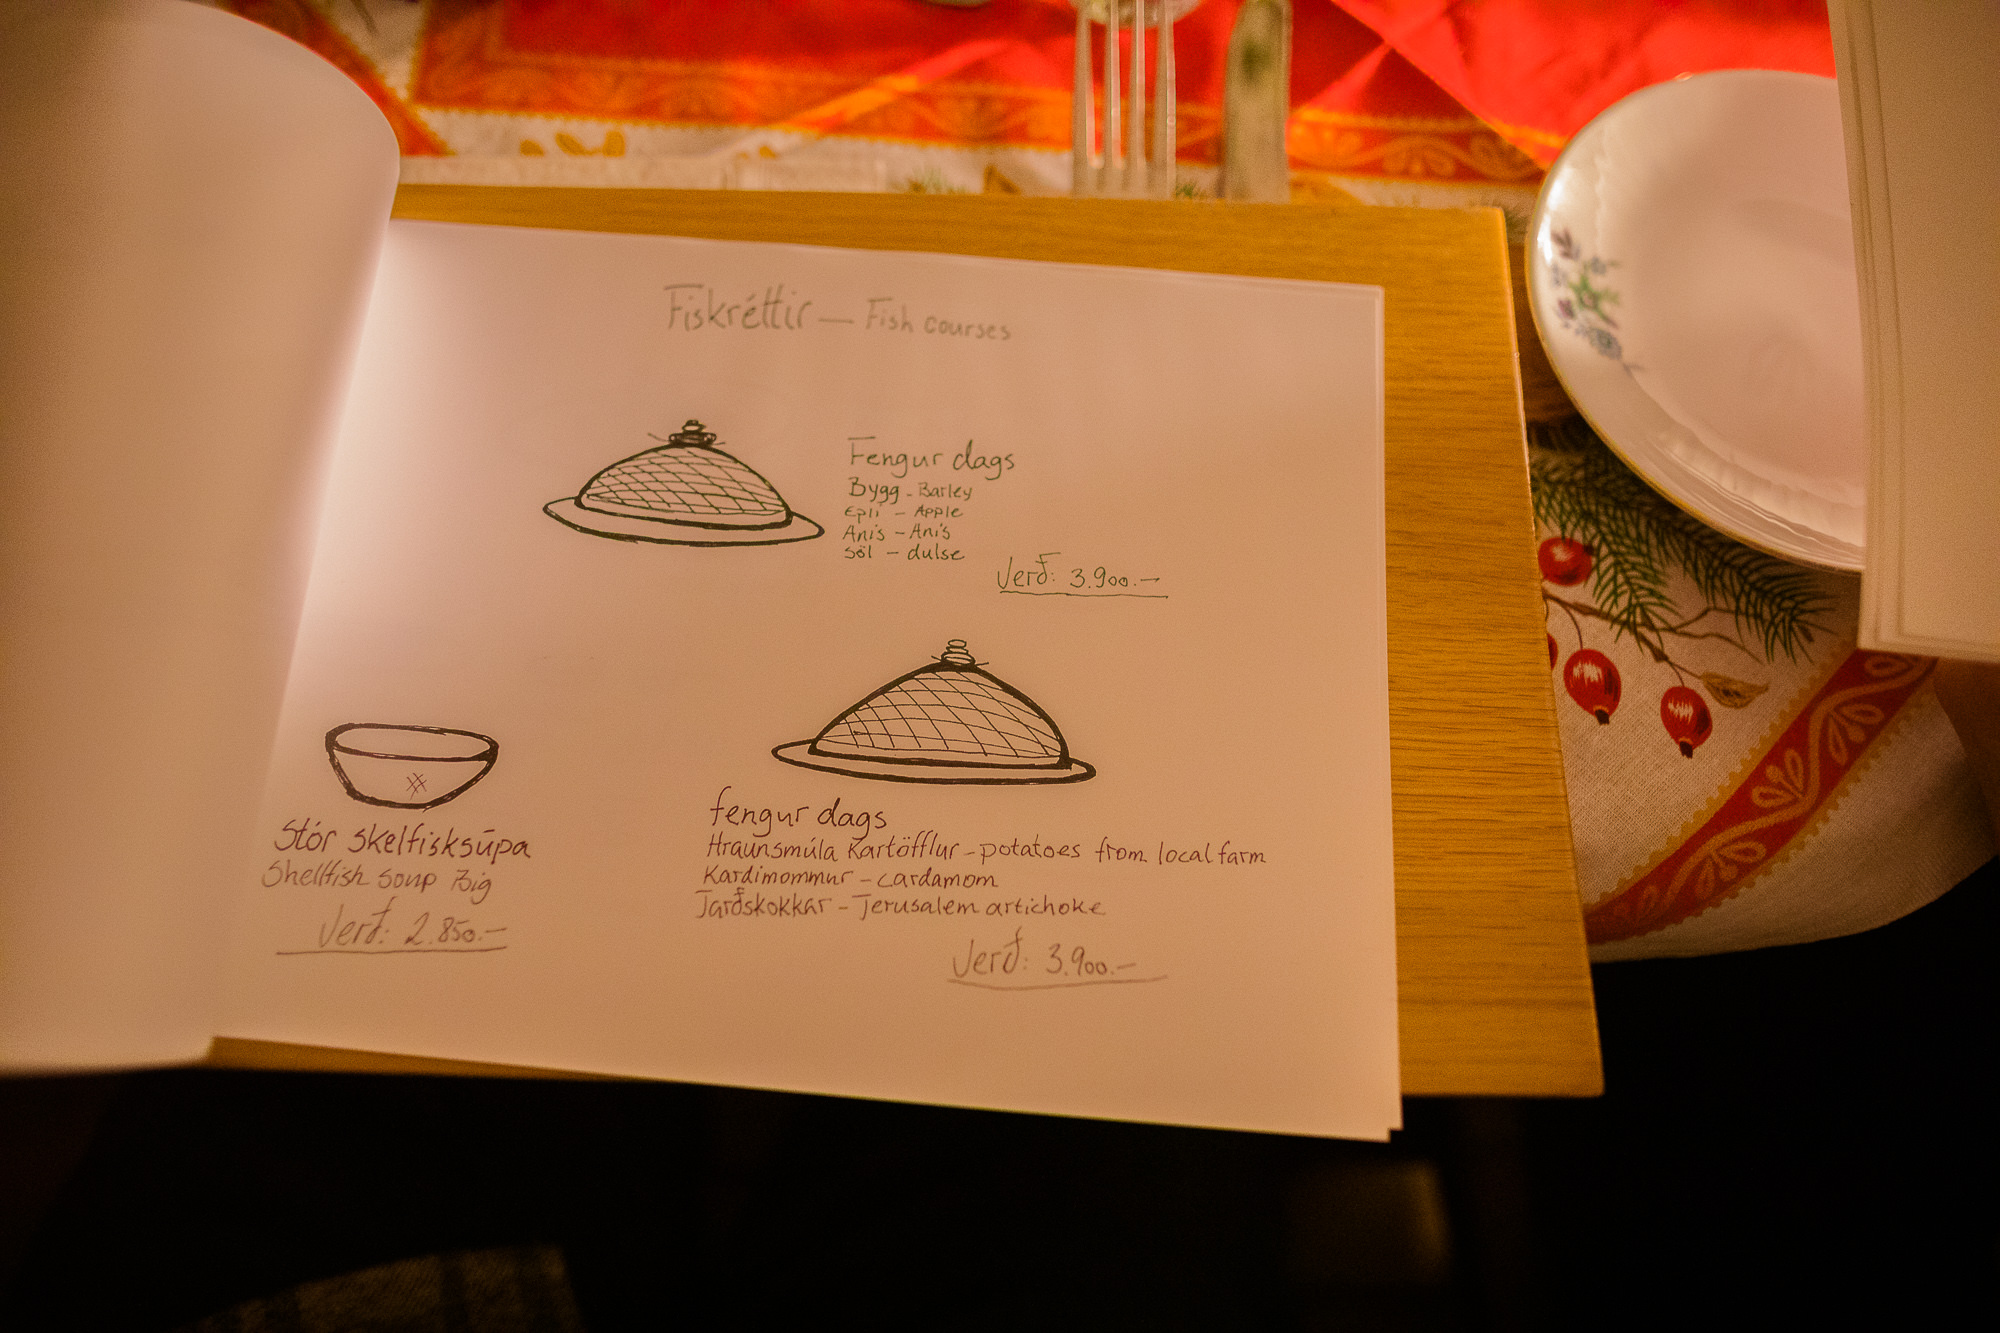 Fiskréttir — Fish courses
Fengur dags
Bygg - Barley
Epli - Apple
Anis - Anis
Söl - dulse
Verð: 3.900.-
Stór skelfisksúpa
Shellfish soup Big
Verð: 2.850.-
fengur dags
Hraunsmúla Kartöfflur - potatoes from local farm
Kardimommur - cardamom
Jarðskokkar - Jerusalem artichoke
Verð: 3.900.-